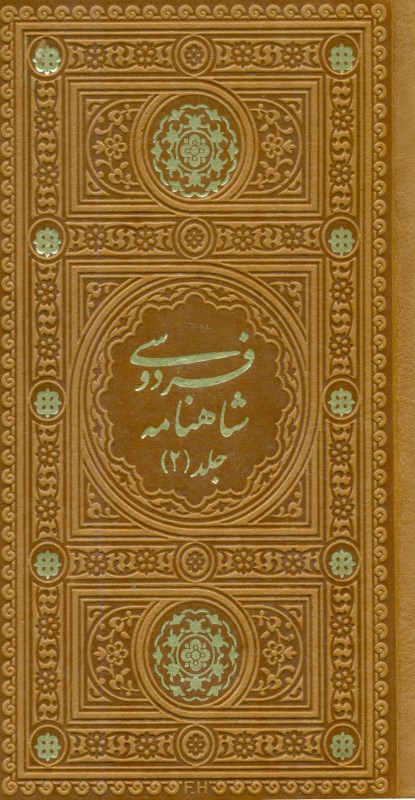 فردوسی
شاهنامه
جلد (۲)
F.H